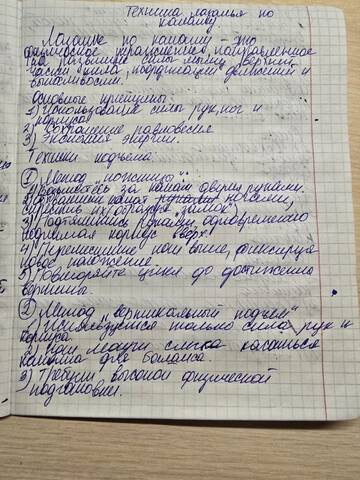 Техника лазанья по
канату
Лазанье по канату - это
физическое упражнение направленное
на развитие силы мышц верхней
части тела, координации движений и
выносливости.
Основные принципы:
1) Использование силы рук, ног и
корпуса
2) Сохранение равновесия
3) Экономия энергии.
Техники подъема
① Метод "ножницы"
1) Возьмитесь за канат двумя руками.
2) канат ногами,
скрестив их образуя "замок"
одновременно
поднимая корпус вверх.
4) Переместите ноги выше, фиксируя
новое положение.
5) Повторяйте цикл до достижения
вершины.
② Метод "вертикальный подъем"
1) Используется только сила рук и
корпуса.
2) Ноги могут слегка касаться
каната для баланса.
3) Требует высокой физической
подготовки.